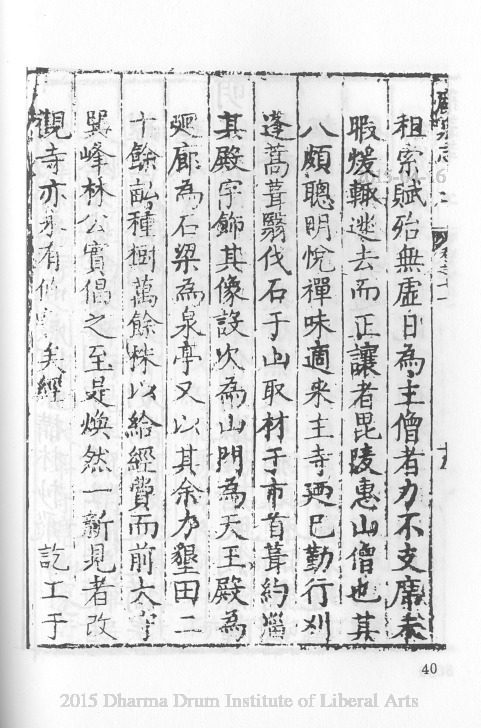 租索賦殆無虛日為主僧者力不支席未
暇煖輙逃去而正讓者毘陵惠山僧也其
人頗聰明悅禪味適来主寺廼巳勤行刈
蓬蒿葺翳伐石于山取材于市首葺約
其殿宇飾其像設次為山門為天王殿為
廊為石梁為泉亭又以其余力墾田二
十餘畝種樹萬餘株以給經費而前太守
巽峰林公實倡之至是煥然一新見者改
觀寺亦永有 矣經 訖工于
40
2015 Dharma Drum Institute of Liberal Arts